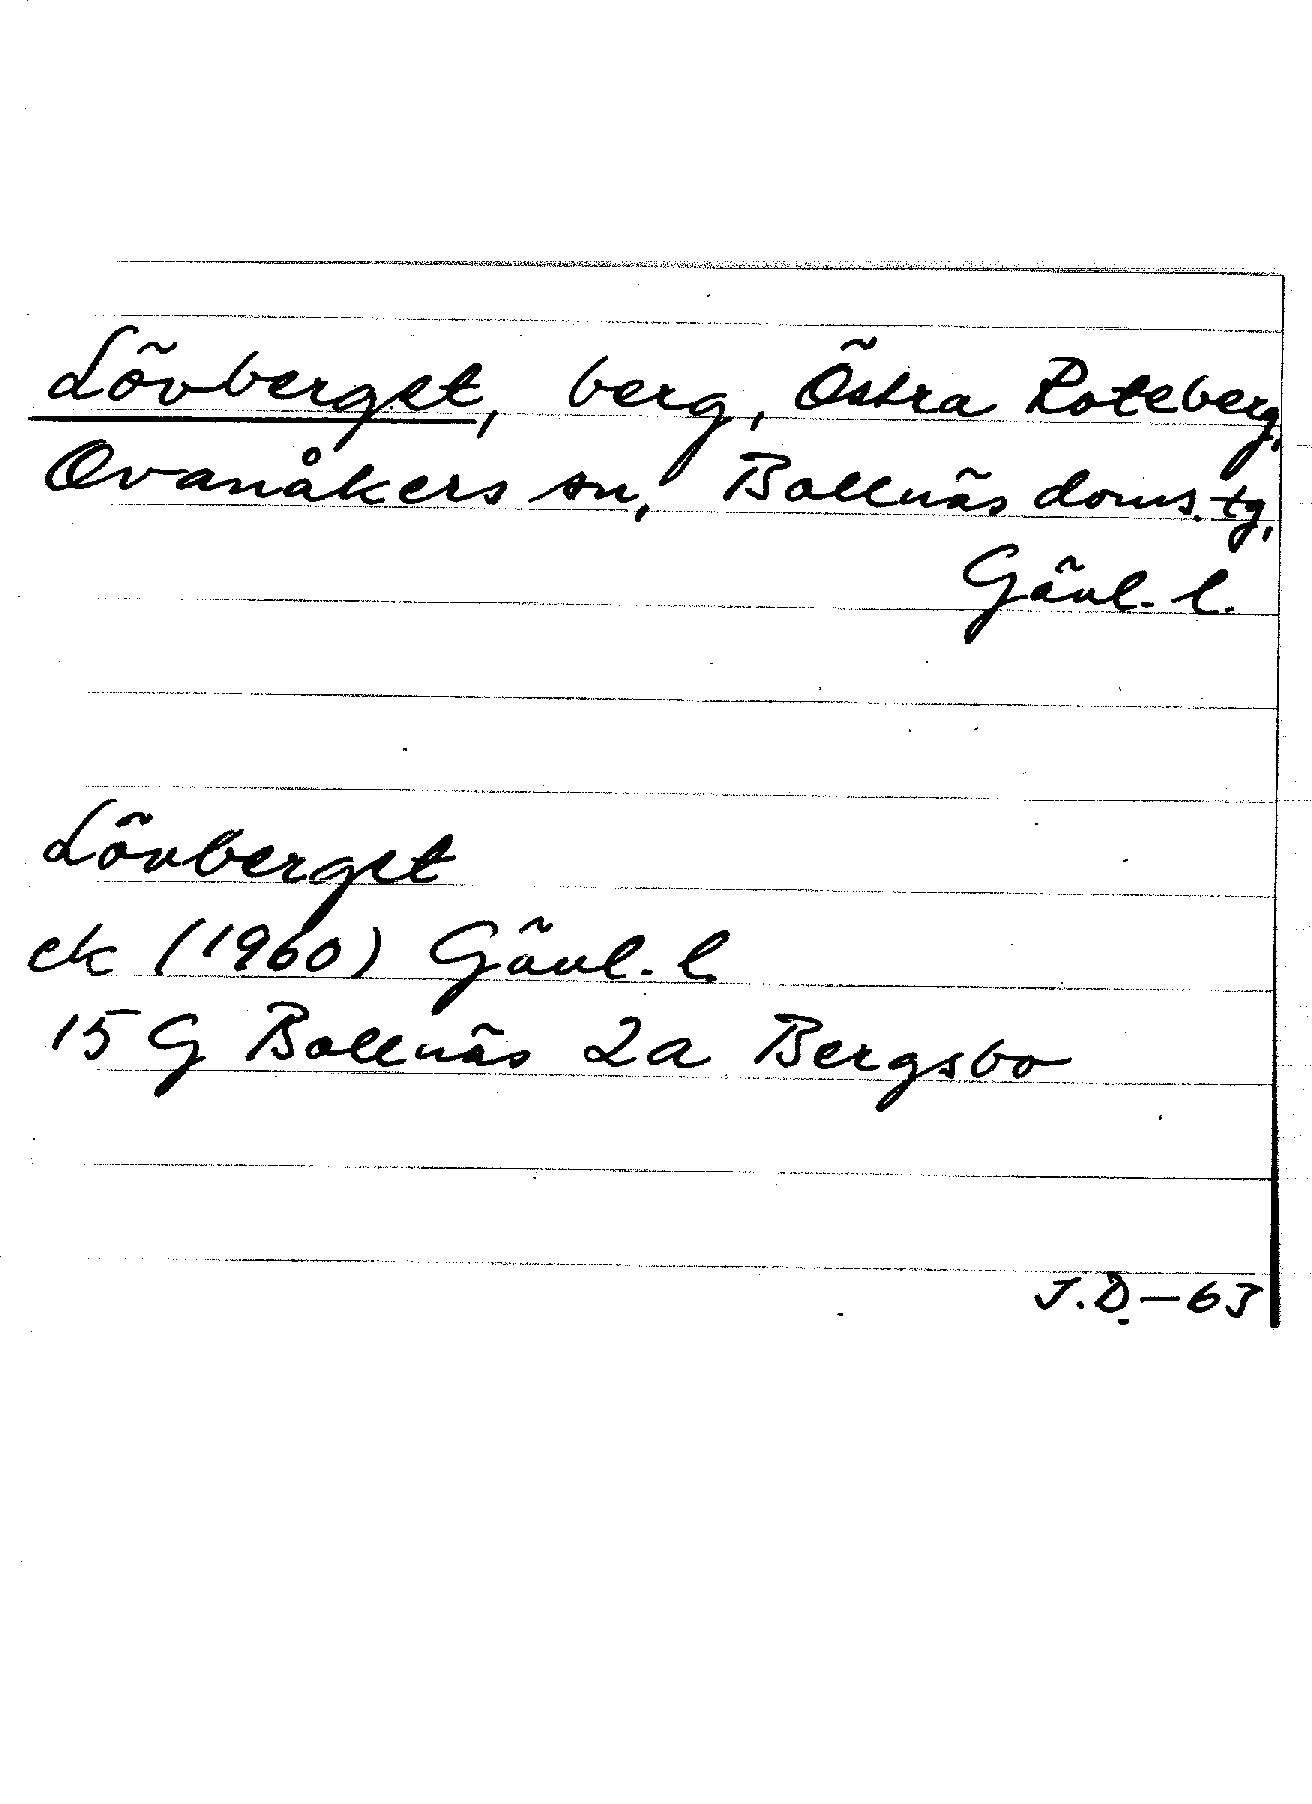 Lövberget, berg, Östra Roteberg,
Ovanåkers sn, Bollnäs doms.tg,
Gävl. l.
Lövberget
ek (1960) Gävl. l.
15 G Bollnäs 2a Bergsbo
J.D-63